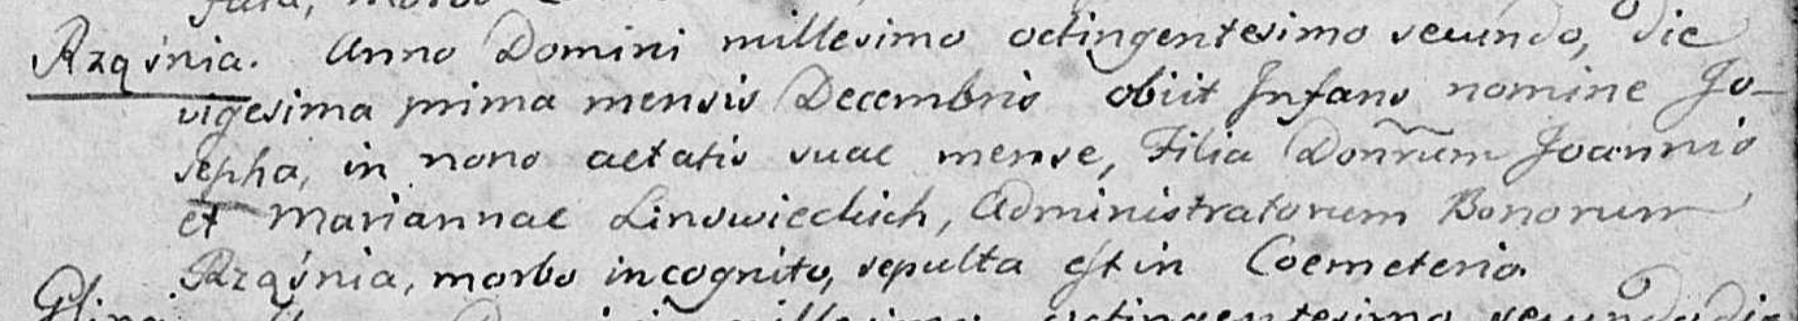 Rząśnia. Anno Domini millesimo octingentesimo secundo, die
vigesima prima mensis Decembris obiit Infans nomine Jo-
sepha, in nono aetatis suae mense, Filia Donrum Joannis
et Mariannae Linowieckich, Administratorum Bonorum
Rząśnia, morbo incognito, sepulta est in Coemeterio.